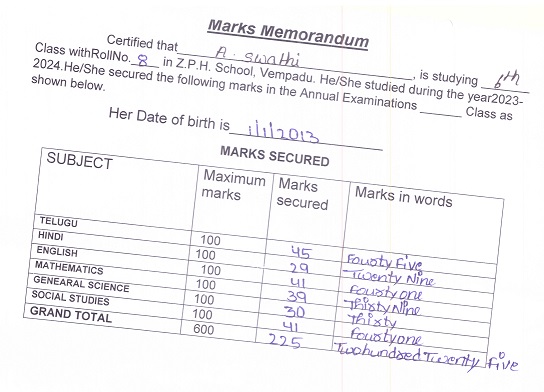 Marks Memorandum
Certified that A. Swathi, is studying 6th
Class withRollNo. 8 in Z.P.H. School, Vempadu. He/She studied during the year2023-
2024.He/She secured the following marks in the Annual Examinations ______ Class as
shown below.
Her Date of birth is 1/1/2013
MARKS SECURED
SUBJECT Maximum marks Marks secured Marks in words
TELUGU 100 45 Fourty Five
HINDI 100 29 Twenty Nine
ENGLISH 100 41 Fourty one
MATHEMATICS 100 39 Thirty Nine
GENEARAL SCIENCE 100 30 Thirty
SOCIAL STUDIES 100 41 Fourty one
GRAND TOTAL 600 225 Two hundred Twenty Five